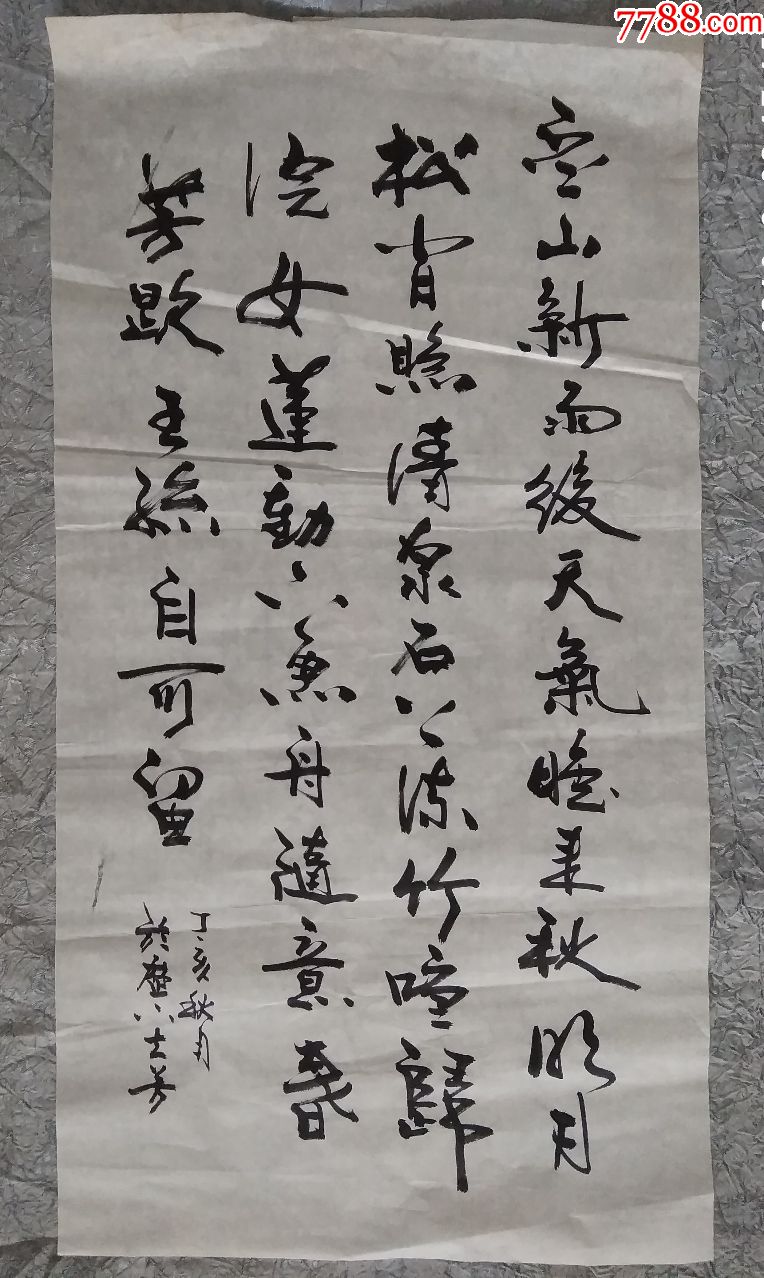 7788.com
空山新雨後天氣晚来秋明月
松間照清泉石上流竹喧歸
浣女蓮動下魚舟隨意春
芳歇王孫自可留
丁亥秋月
於士芳